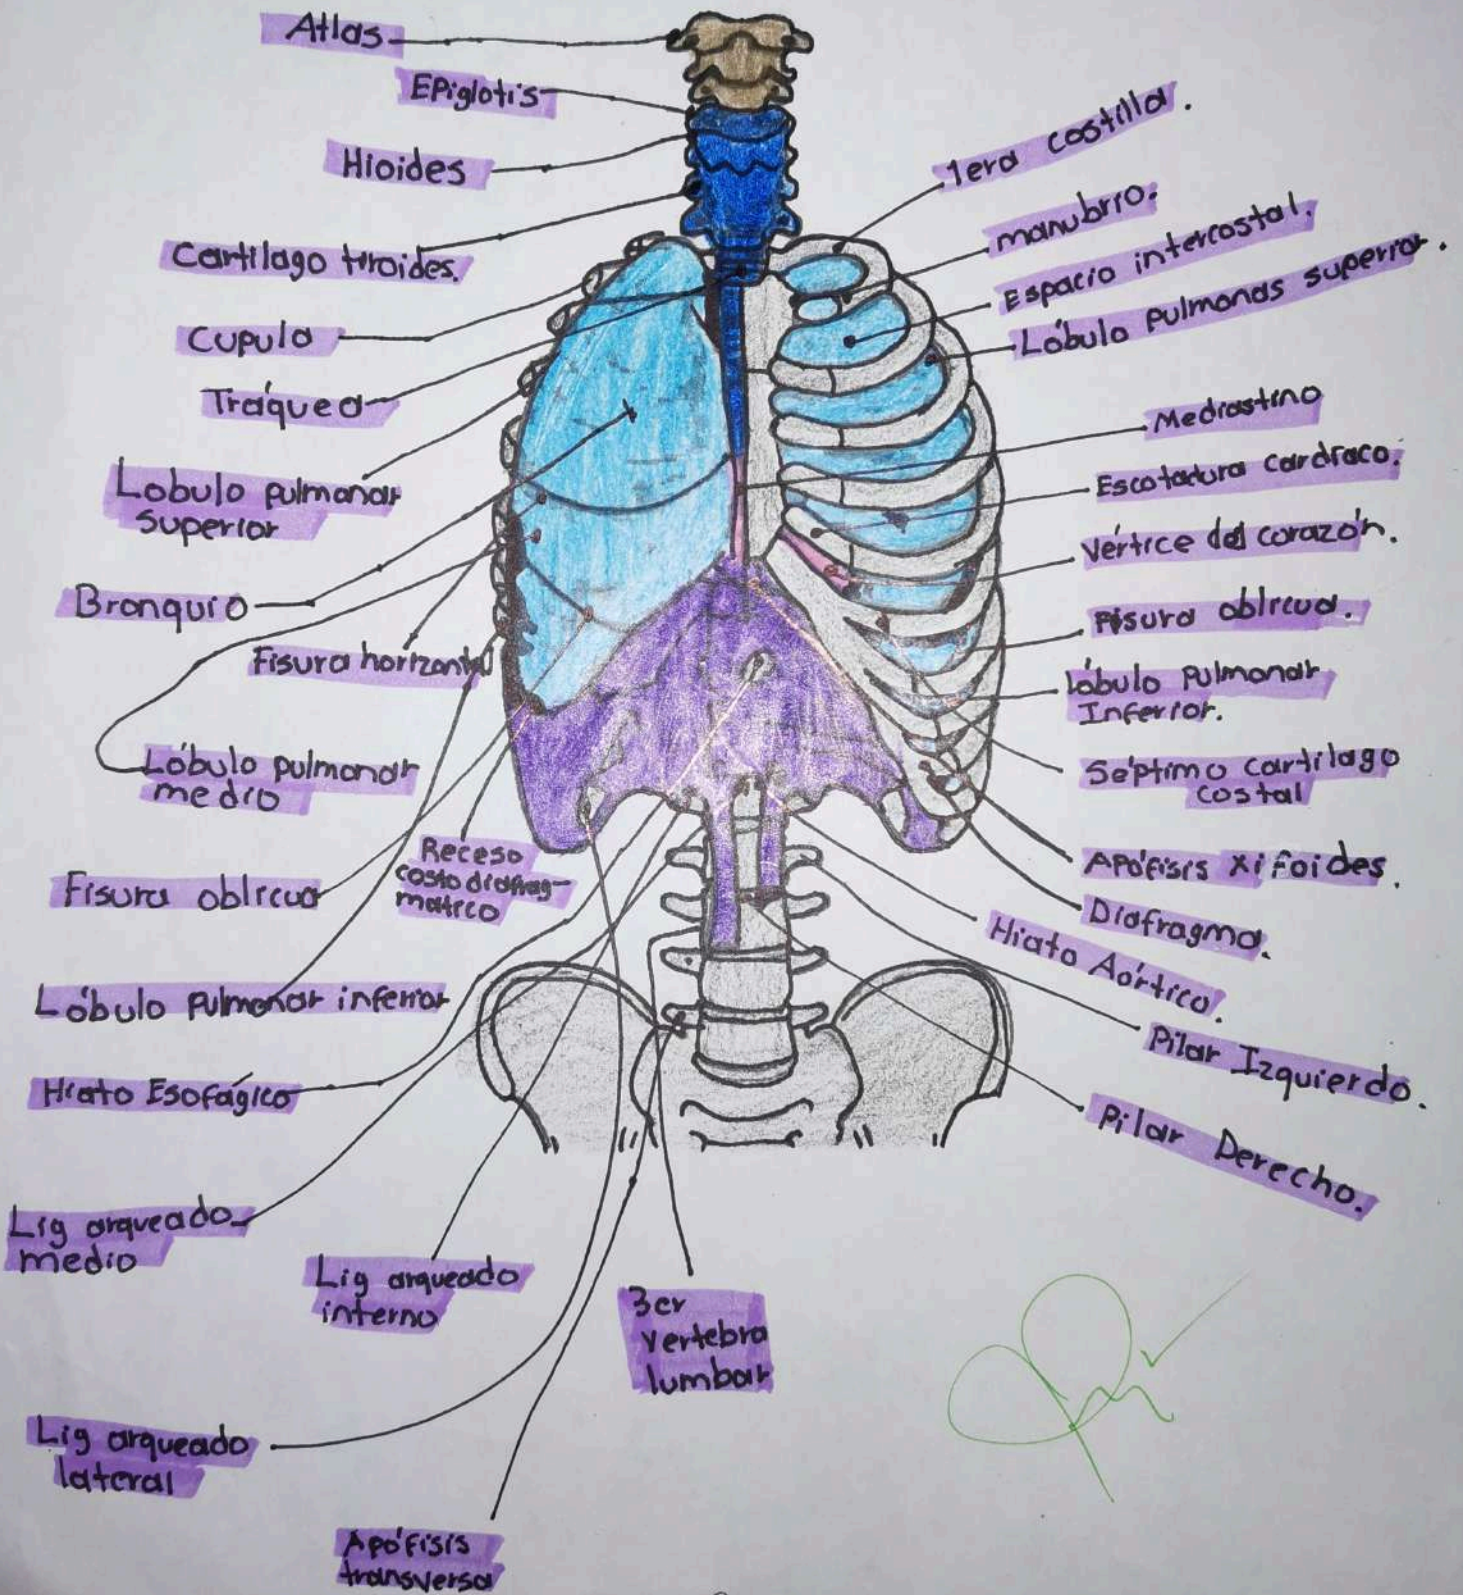 Atlas
Epiglotis
Hioides
Cartilago tiroides.
Cupula
Tráquea
Lobulo pulmonar
superior
Bronquio
Fisura horizontal
Lóbulo pulmonar
medio
Receso
costodiafrag-
matico
Fisura oblicua
Lóbulo pulmonar inferior
Hiato Esofágico
Lig arqueado
medio
Lig arqueado
interno
3er
vertebra
lumbar
Lig arqueado
lateral
Apófisis
transversa
1era costilla.
manubrio.
Espacio intercostal.
Lóbulo pulmonas superior.
Mediastino
Escotadura cardiaco.
Vértice del corazón.
Fisura oblicua.
lóbulo pulmonar
Inferior.
Séptimo cartilago
costal
Apófisis xifoides.
Diafragma.
Hiato Aórtico.
Pilar Izquierdo.
Pilar Derecho.